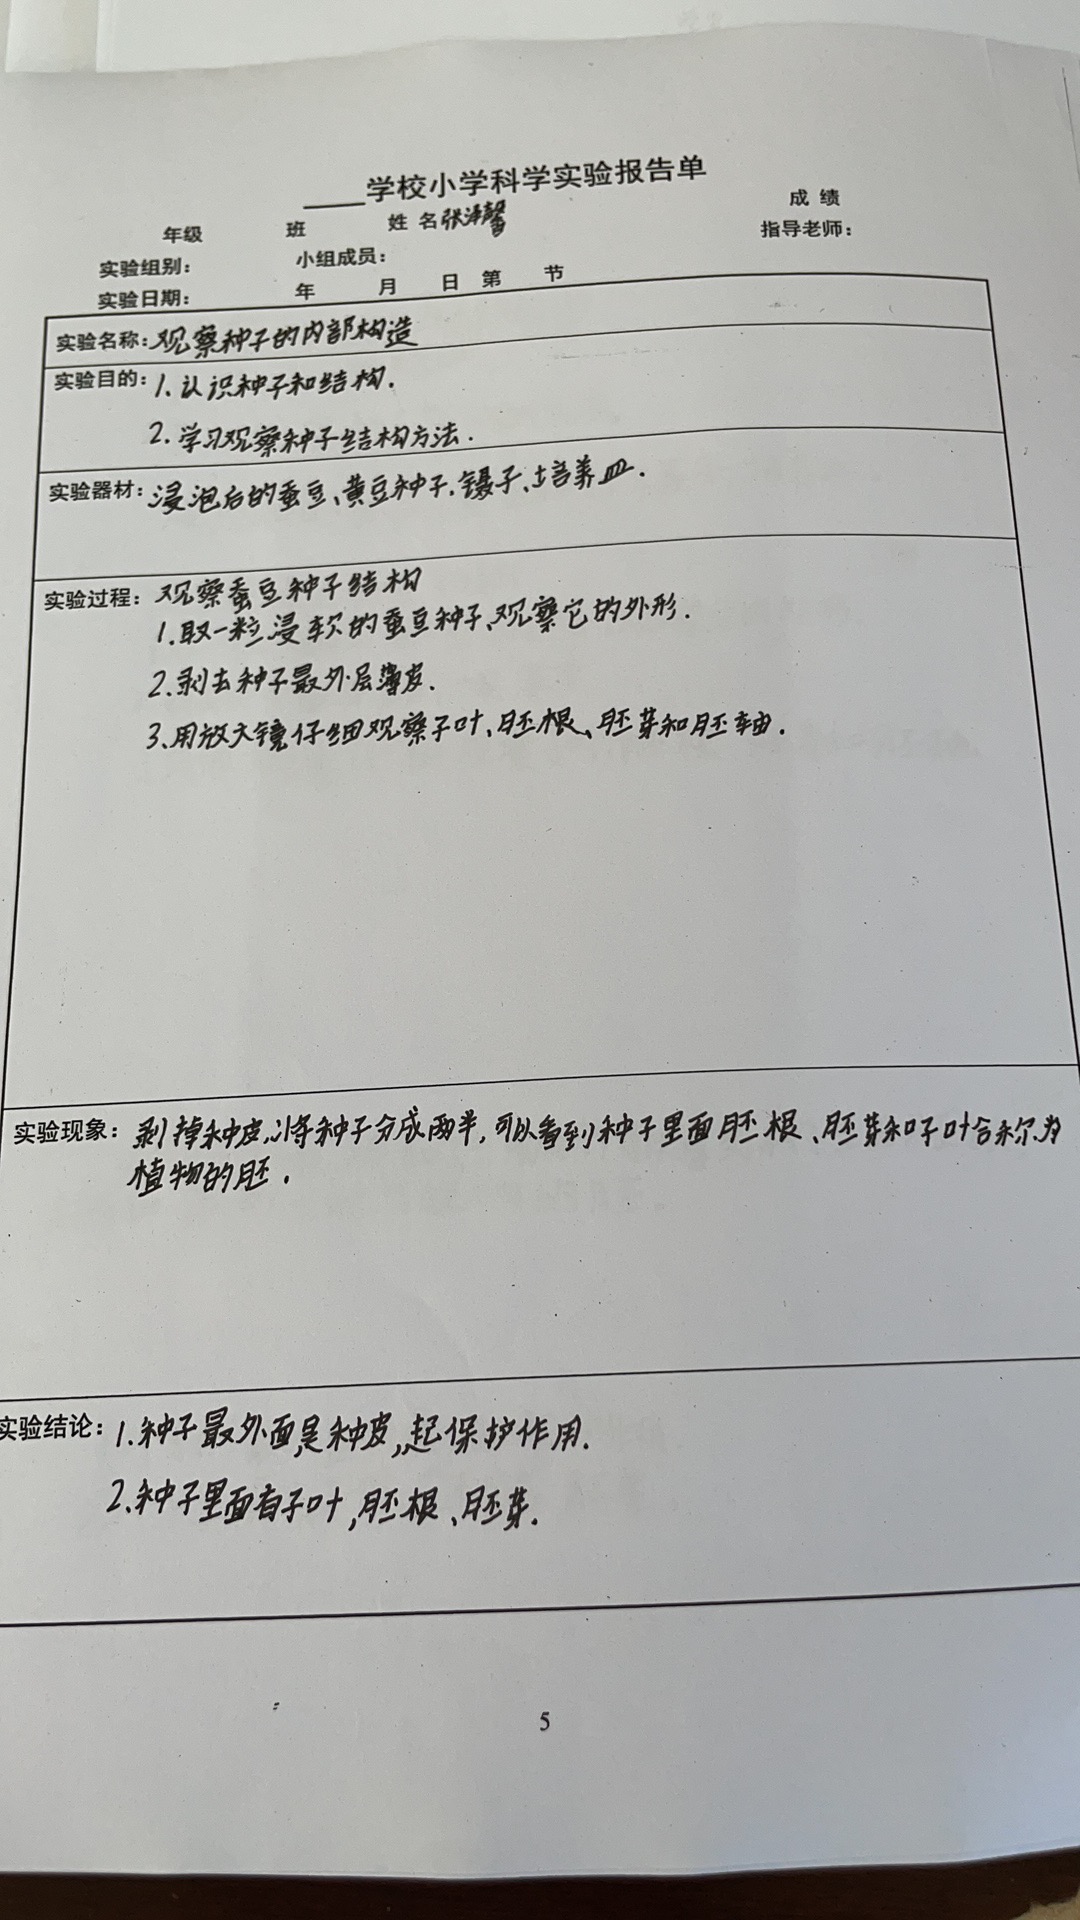 ____学校小学科学实验报告单
年级 班 姓 名张泽馨 成 绩
实验组别: 小组成员: 指导老师:
实验日期: 年 月 日 第 节
实验名称:观察种子的内部构造
实验目的:1.认识种子和结构.
2.学习观察种子结构方法.
实验器材:浸泡后的蚕豆、黄豆种子.镊子、培养皿.
实验过程:观察蚕豆种子结构
1.取一粒浸软的蚕豆种子、观察它的外形.
2.剥去种子最外层薄皮.
3.用放大镜仔细观察子叶、胚根、胚芽和胚轴.
实验现象:剥掉种皮,将种子分成两半,可以看到种子里面胚根、胚芽和子叶合称为
植物的胚.
实验结论:1.种子最外面是种皮,起保护作用.
2.种子里面有子叶,胚根、胚芽.
5